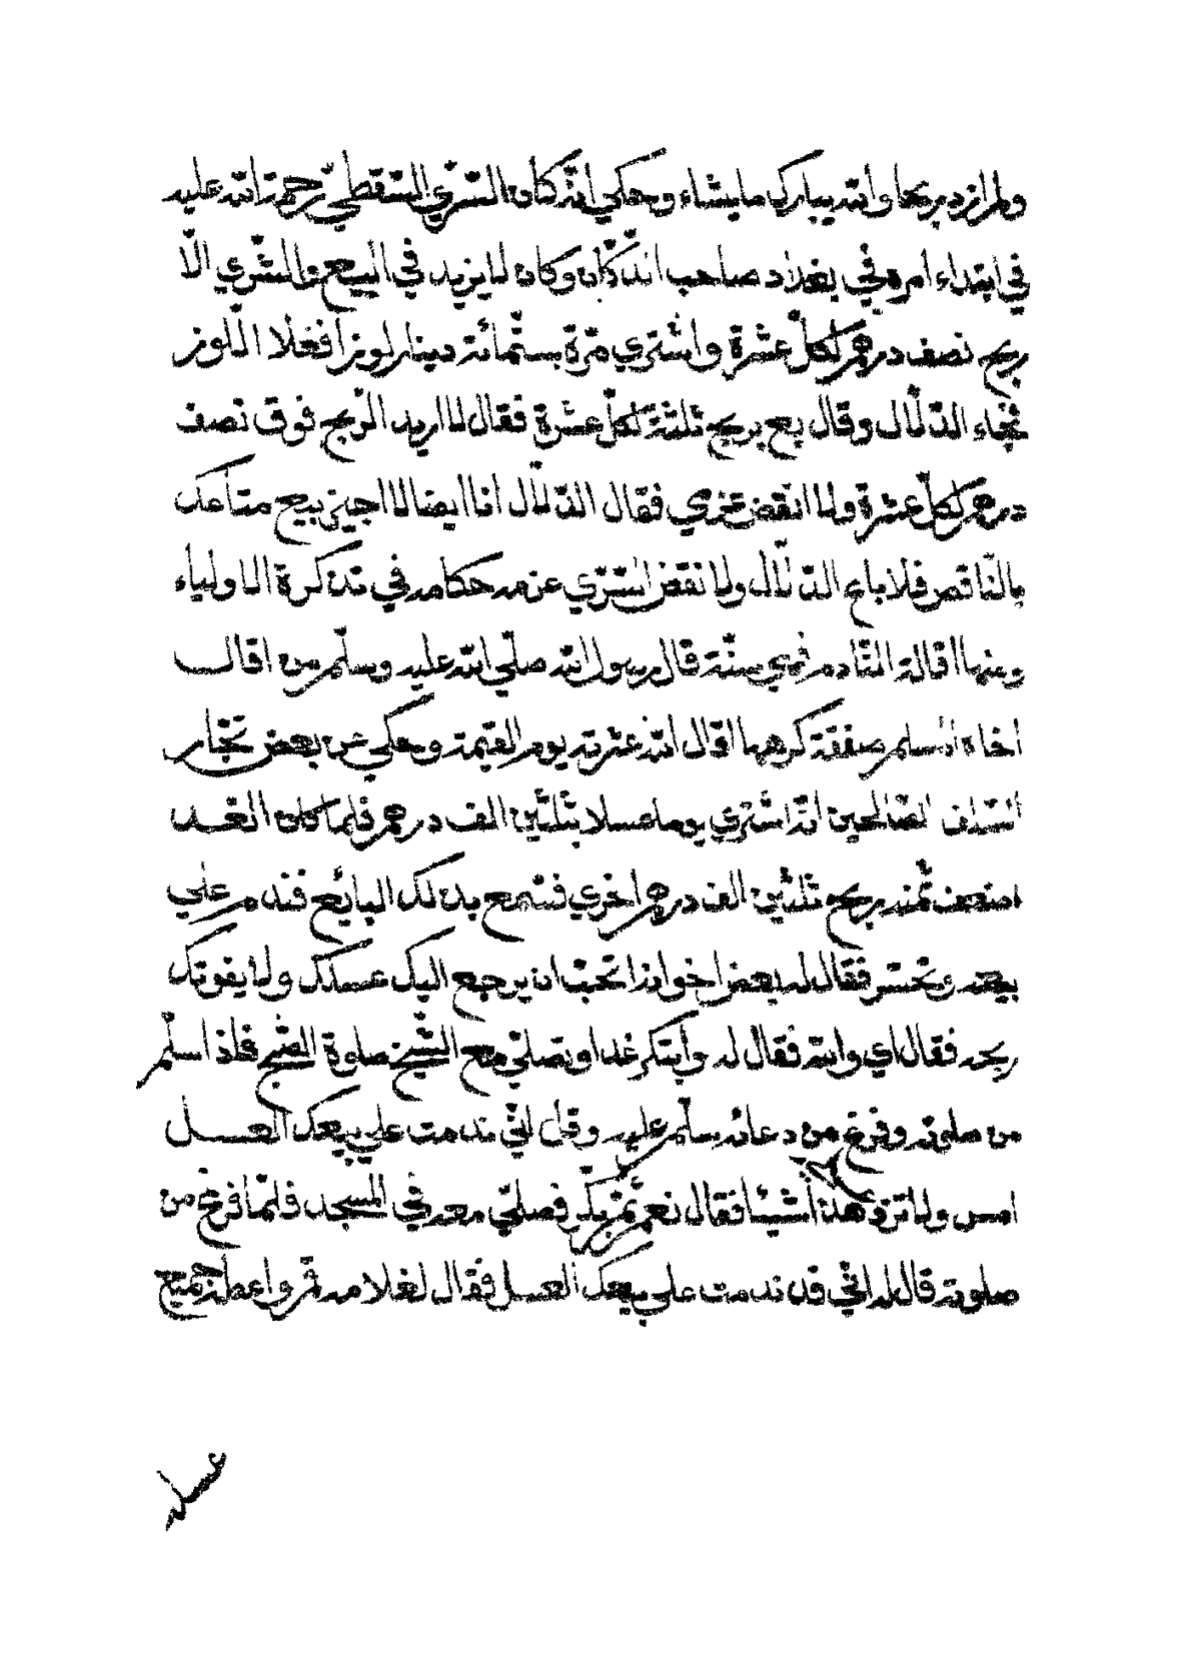 ولم ازد بربحها والله يبارك ما يشاء وحكي انه كان السّري السّقطي رحمة الله عليه
في ابتداء امره في بغداد صاحب الدّكان وكان لا يزيد في البيع والشّري الّا
بربح نصف درهم لكل عشرة واشتري مرّة بستّمائة دينار لوزا فغلا اللّوز
فجاء الدّلّال وقال بع بربح ثلثة لكلّ عشرة فقال لا اريد الرّبح فوق نصف
درهم لكلّ عشرة ولا انقض عزمي فقال الدّلّال انا ايضا لا اجيز بيع متاعك
بالنّاقص فلا باع الدّلّال ولا نقض السّري عزمه حكاه في تذكرة الاولياء
ومنها اقالة النّادم فهي سنّة قال رسول الله صلّي الله عليه وسلّم من اقال
اخاه المسلم صفقة كرهها اقال الله عثرته يوم القيمة وحكي عن بعض تجّار
السّلف الصّالحين انّه اشتري يوما عسلا بثلثين الف درهم فلما كان الغد
اضعف ثمنه بربح ثلثين الف درهم اخري فسمع بذلك البائع فندم علي
بيعه وتحسّر فقال له بعض اخوانه اتحبّ ان يرجع اليك عسلك ولا يفوتك
ربحه فقال اي والله فقال له وابتكر غدا وتصلّي مع الشّيخ صلوة الصّبح فاذا سلّم
من صلوته وفرغ من دعائه سلّم عليه وقل انّي ندمت علي بيعك العسل
امس ولا تزد هذا شيئا فقال نعم ثمّ بكّر فصلّي معه في المسجد فلمّا فرغ من
صلوته قال له انّي قد ندمت علي بيعك العسل فقال لغلامه قم واعطه جميع
عسله